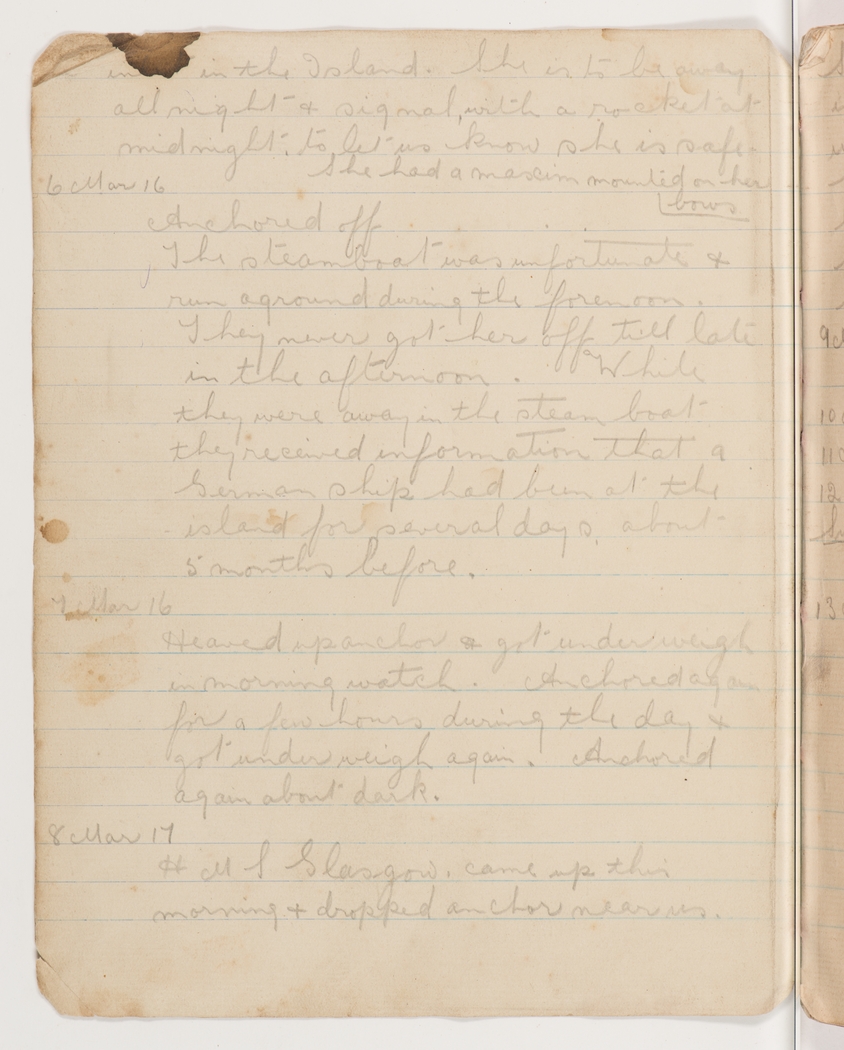 in the Island. She is to be away
all night & signal, with a rocket at
midnight. to let us know she is safe.
She had a maxim mounted on her
bows
6 Mar 16
Anchored off
The steamboat was unfortunate &
run aground during the forenoon.
They never got her off till late
in the afternoon. While
they were away in the steam boat
they received information that a
German ship had been at the
island for several days, about
5 months before.
7 Mar 16
Heaved up anchor & got under weigh
in morning watch. Anchored again
for a few hours during the day &
got under weigh again. Anchored
again about dark.
8 Mar 17
H M S Glasgow. came up this
morning & dropped anchor near us.